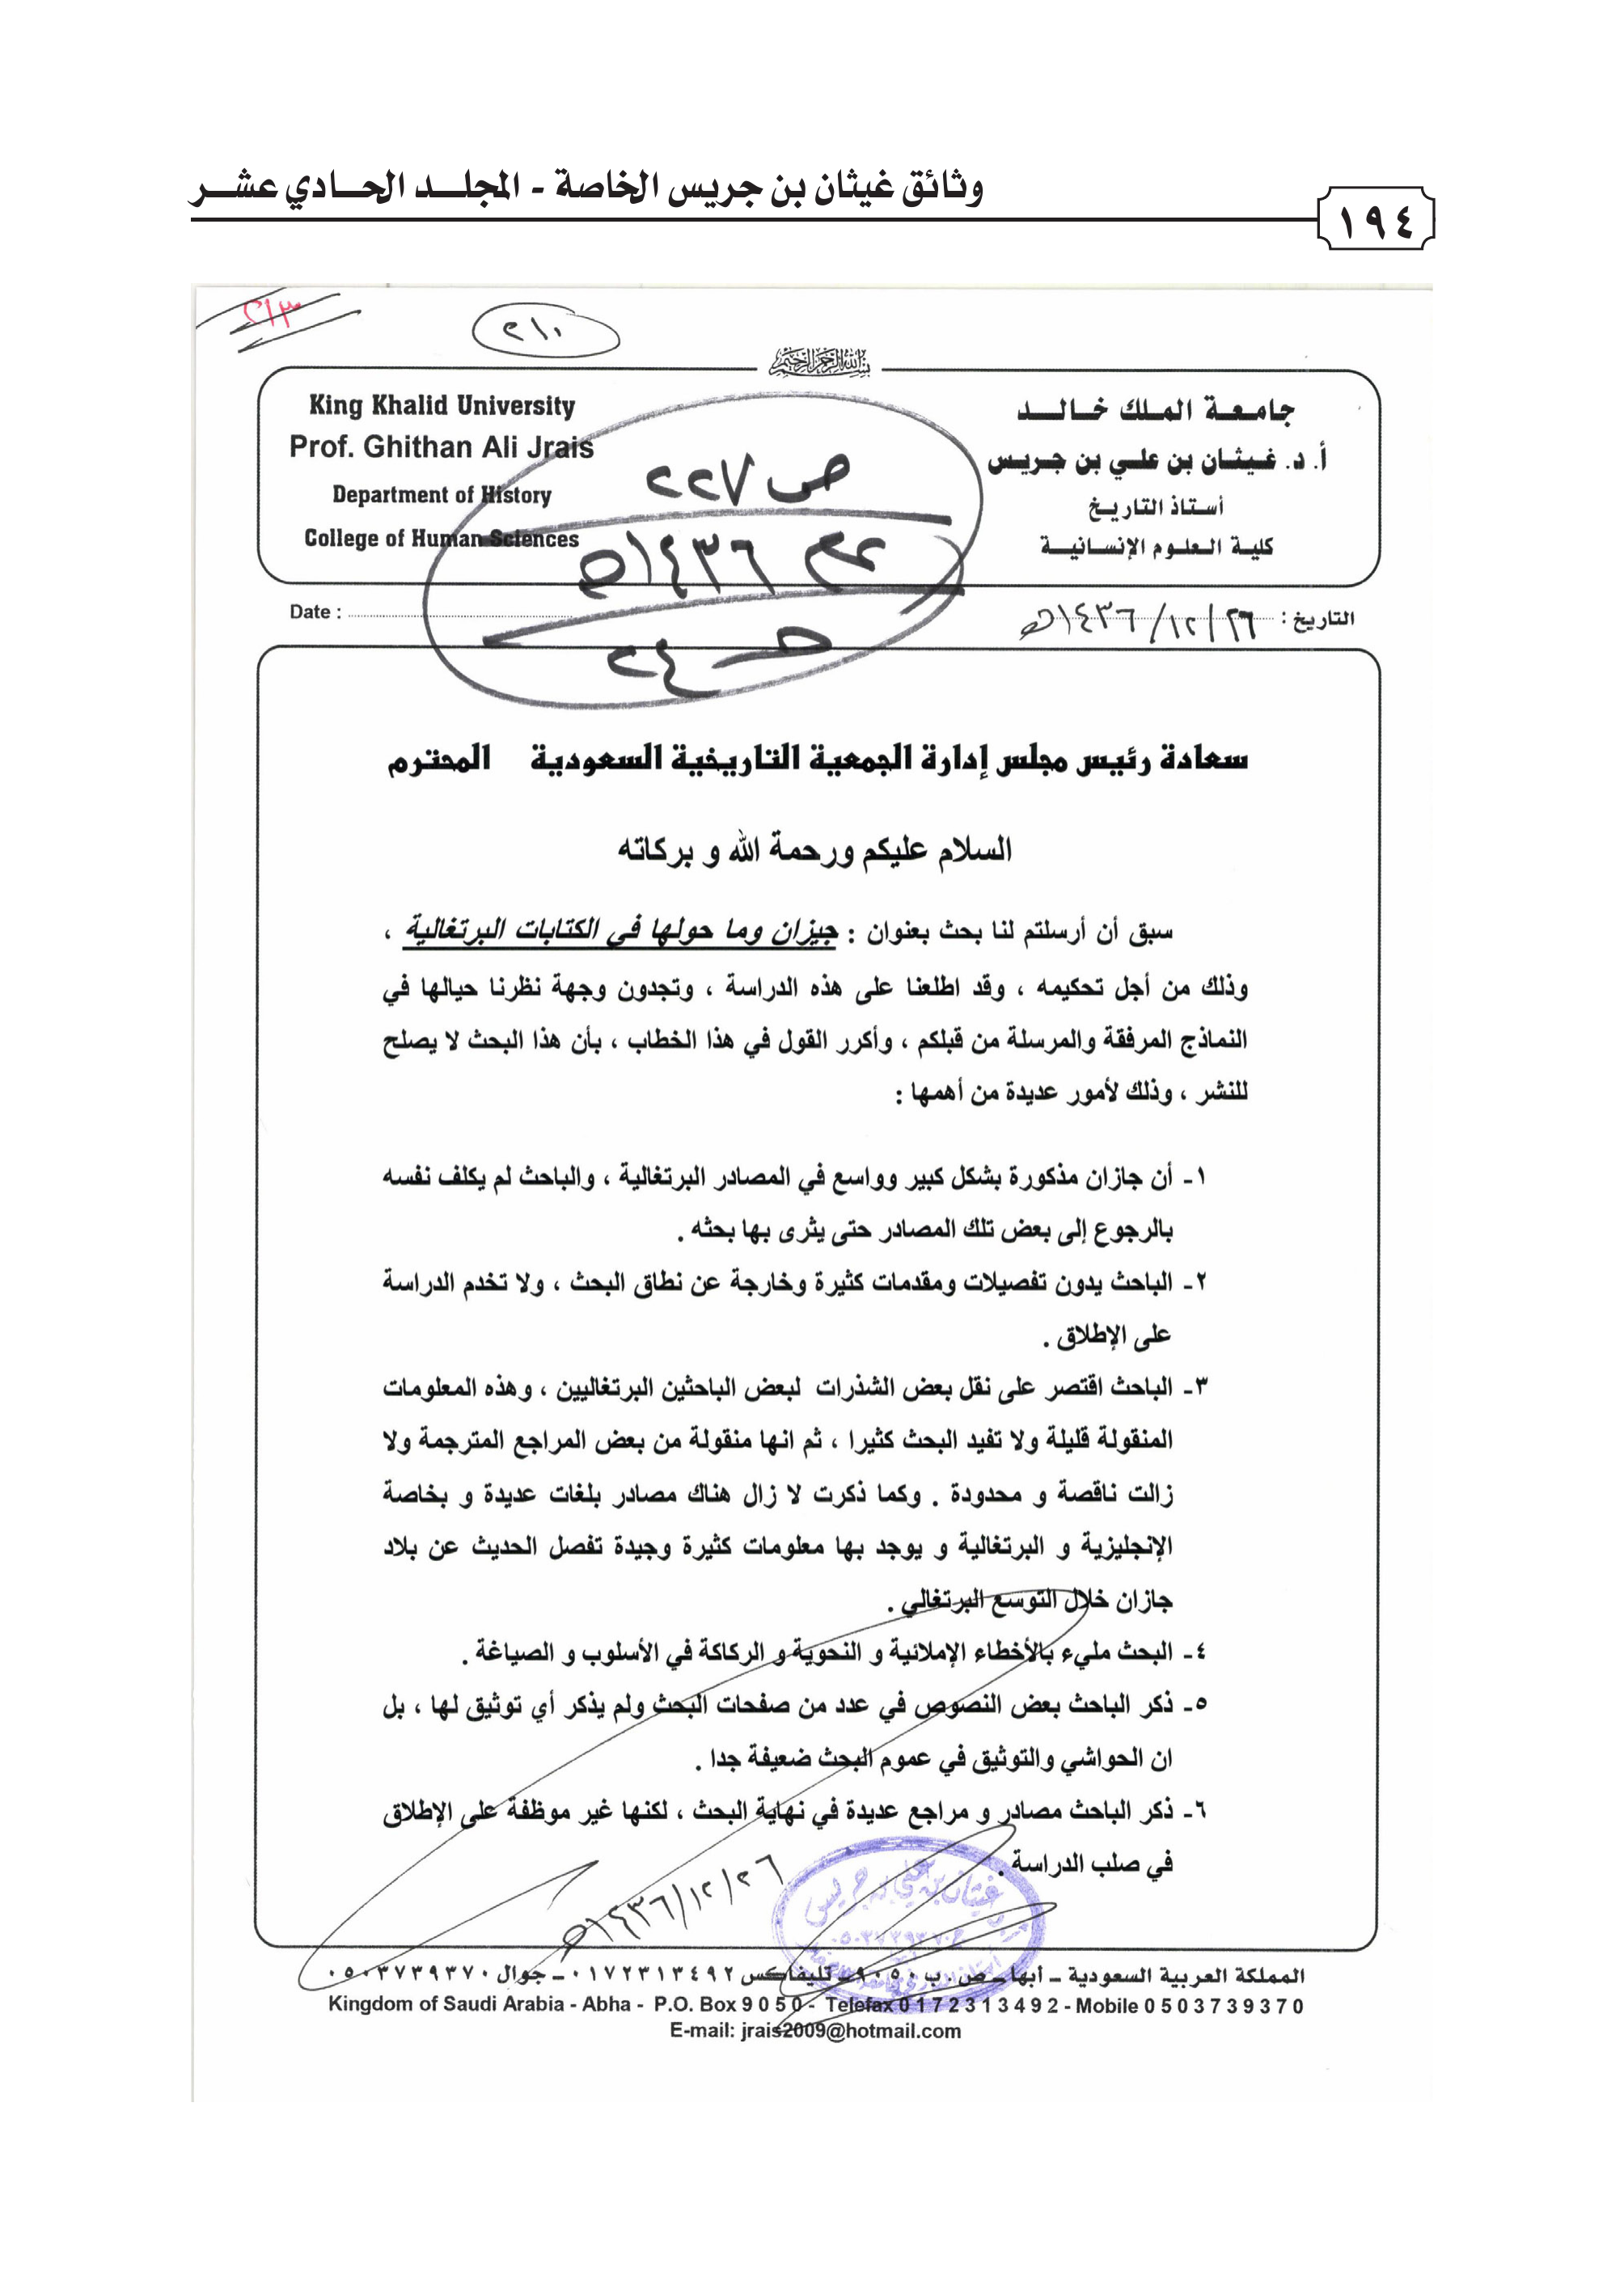 وثائق غيثان بن جريس الخاصة - المجلـــد الحـــادي عشـــر
١٩٤
٢١٣
٢١٠
بسم الله الرحمن الرحيم
King Khalid University
Prof. Ghithan Ali Jrais
Department of History
College of Human Sciences
جامـعـة الـمـلك خـالــد
أ. د. غـيـثـان بن علـي بن جـريـس
أسـتـاذ التـاريـخ
كليـة الـعلـوم الإنـسـانيــة
ص ٢٢٧
١٤٣٦هـ
٢٤
Date :
التاريخ : ٢٦/ ١٢/ ١٤٣٦هـ
سعادة رئيس مجلس إدارة الجمعية التاريخية السعودية المحترم
السلام عليكم ورحمة الله و بركاته
سبق أن أرسلتم لنا بحث بعنوان : جيزان وما حولها في الكتابات البرتغالية ،
وذلك من أجل تحكيمه ، وقد اطلعنا على هذه الدراسة ، وتجدون وجهة نظرنا حيالها في
النماذج المرفقة والمرسلة من قبلكم ، وأكرر القول في هذا الخطاب ، بأن هذا البحث لا يصلح
للنشر ، وذلك لأمور عديدة من أهمها :
١- أن جازان مذكورة بشكل كبير وواسع في المصادر البرتغالية ، والباحث لم يكلف نفسه
بالرجوع إلى بعض تلك المصادر حتى يثرى بها بحثه .
٢- الباحث يدون تفصيلات ومقدمات كثيرة وخارجة عن نطاق البحث ، ولا تخدم الدراسة
على الإطلاق .
٣- الباحث اقتصر على نقل بعض الشذرات لبعض الباحثين البرتغاليين ، وهذه المعلومات
المنقولة قليلة ولا تفيد البحث كثيرا ، ثم انها منقولة من بعض المراجع المترجمة ولا
زالت ناقصة و محدودة . وكما ذكرت لا زال هناك مصادر بلغات عديدة و بخاصة
الإنجليزية و البرتغالية و يوجد بها معلومات كثيرة وجيدة تفصل الحديث عن بلاد
جازان خلال التوسع البرتغالي .
٤- البحث مليء بالأخطاء الإملائية و النحوية و الركاكة في الأسلوب و الصياغة .
٥- ذكر الباحث بعض النصوص في عدد من صفحات البحث ولم يذكر أي توثيق لها ، بل
ان الحواشي والتوثيق في عموم البحث ضعيفة جدا .
٦- ذكر الباحث مصادر و مراجع عديدة في نهاية البحث ، لكنها غير موظفة على الإطلاق
في صلب الدراسة .
٢٦/ ١٢/ ١٤٣٦هـ
غيثان بن علي بن جريس
٠٥٠٣٧٣٩٣٧٠
المملكة العربية السعودية ـ أبها ـ ص . ب ٩٠٥٠ ـ تليفاكس ٠١٧٢٣١٣٤٩٢ ـ جوال ٠٥٠٣٧٣٩٣٧٠
Kingdom of Saudi Arabia - Abha - P.O. Box 9 0 5 0 - Telefax 0 1 7 2 3 1 3 4 9 2 - Mobile 0 5 0 3 7 3 9 3 7 0
E-mail: jrais2009@hotmail.com